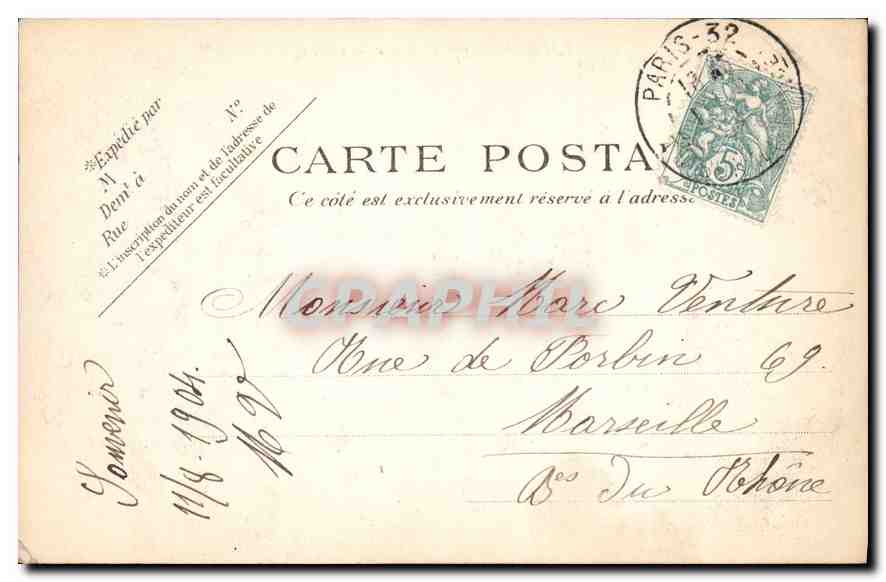 *Expédié par
M
N°
Demt à
Rue
*L'inscription du nom et de l'adresse de
l'expéditeur est facultative
CARTE POSTA
Ce côté est exclusivement réservé à l'adresse
PARIS-32
5
POSTES
GRAPHIL
Monsieur Marc Venture
Rue de 69.
Marseille
Bes du Rhône
Souvenir
11/8-1904.